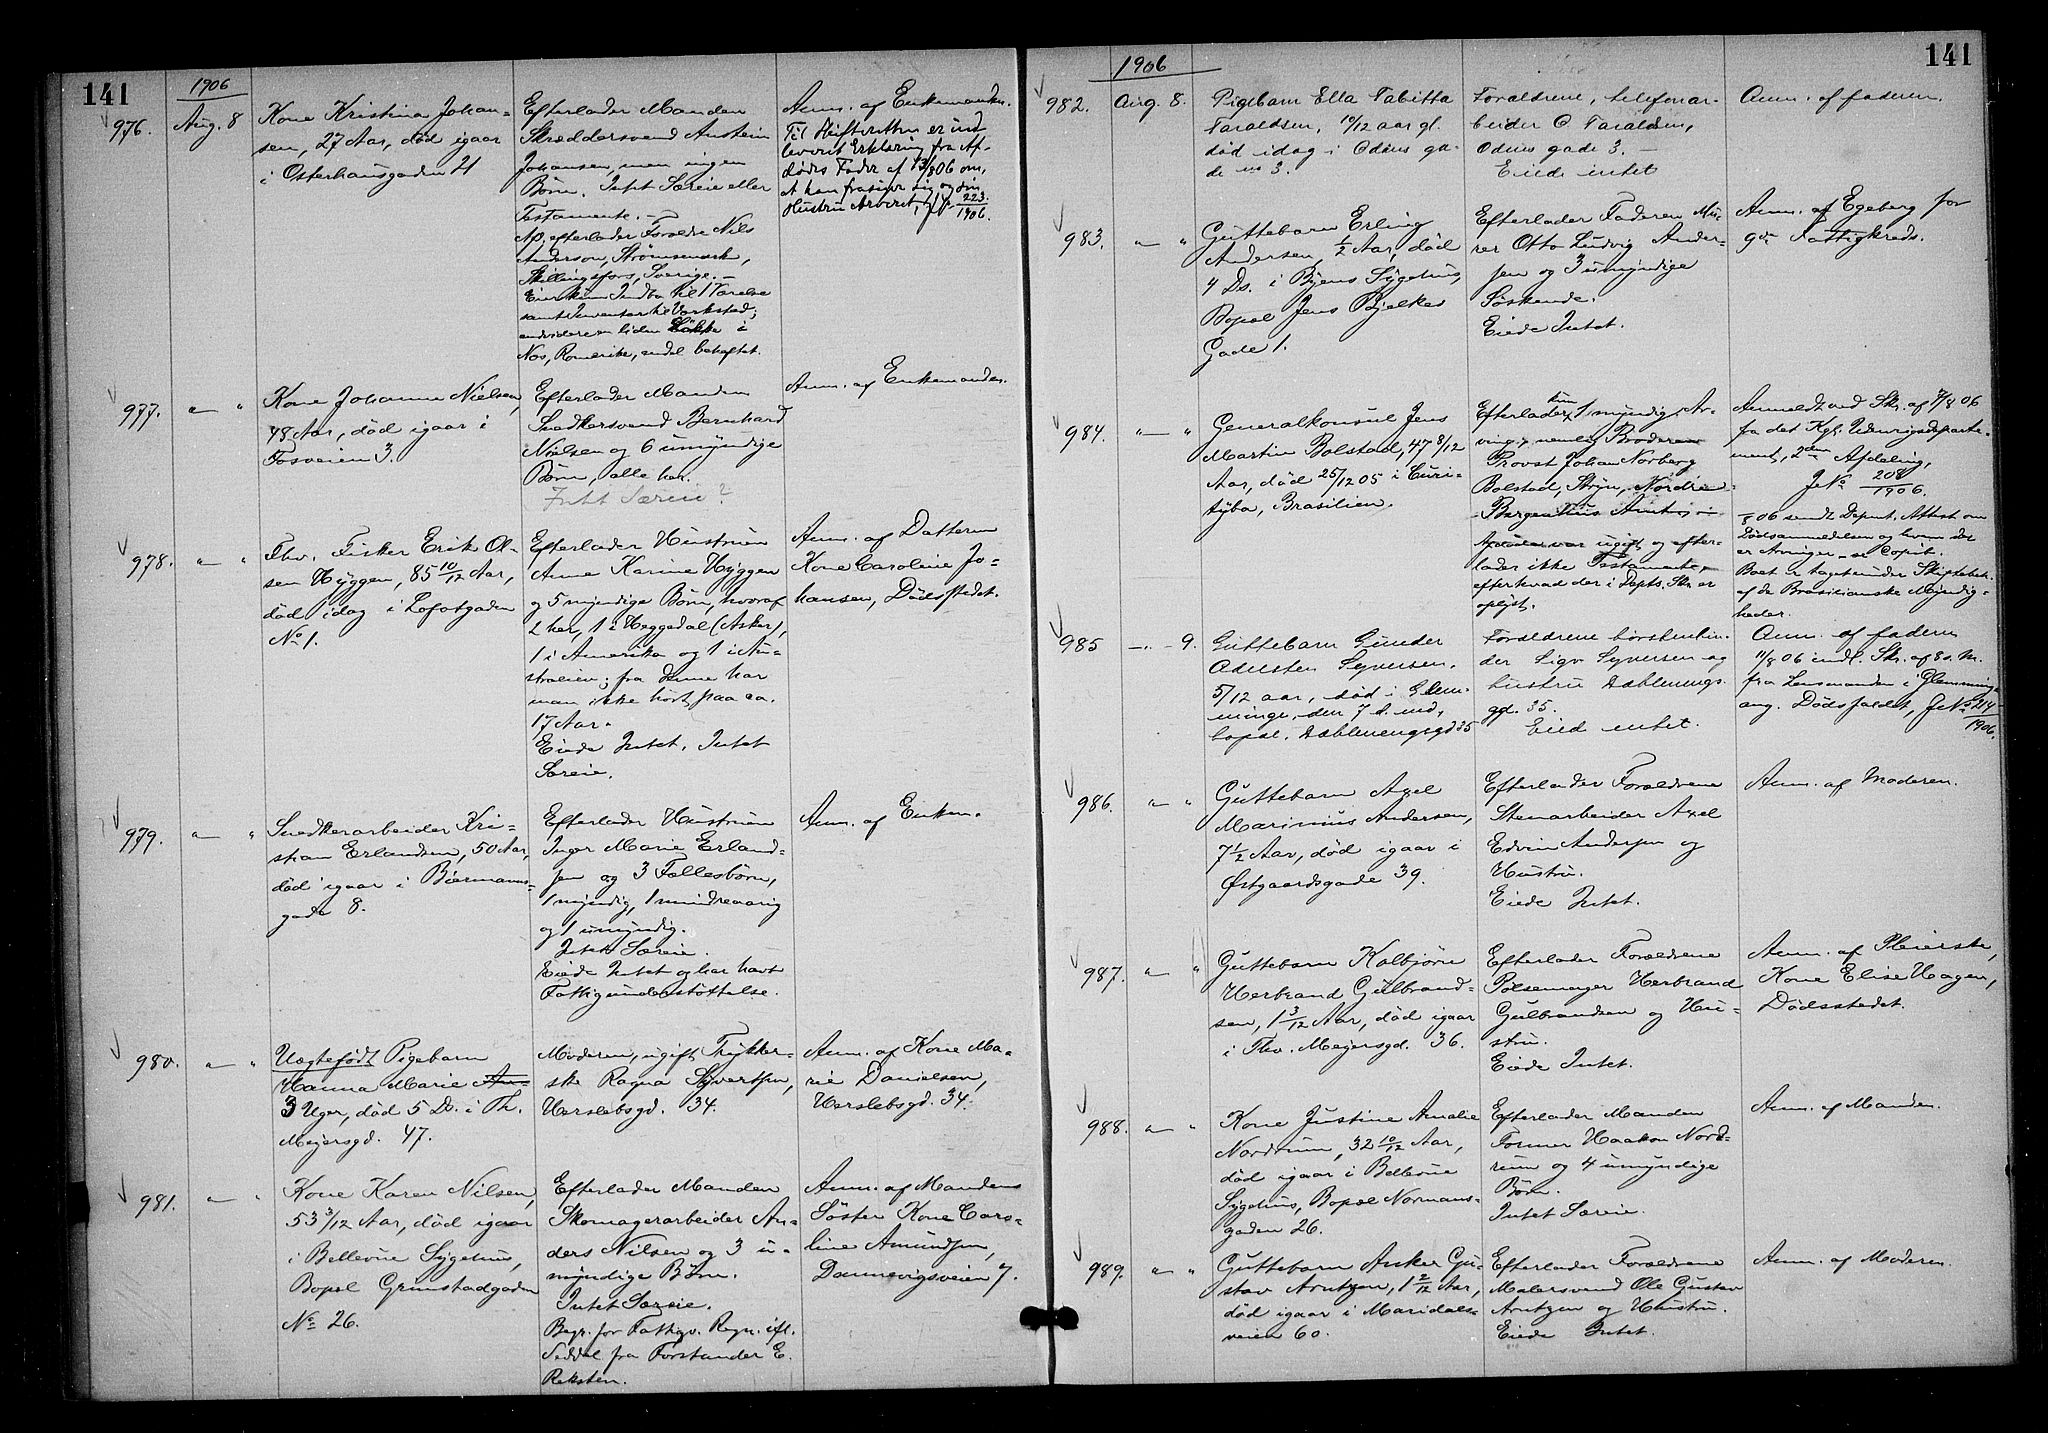 141
1906
976.
Aug. 8
Kone Kristina Johan-
sen, 27 Aar, död igaar
i Osterhausgaden 21
Efterlader Manden
Skræddersvend Anstein
Johansen, men ingen
Børn. Intet Særeie eller
Testamente. –
Afd. efterlader Forældre Nils
Anderson, Strømsmark,
Skillingsfors, Sverige. –
Indbo til 1 Værelse
samt Inventar til Værksted;
endvidere en liden Løkke i
Nes, Romerike, endel beheftet.
Anm. af Enkemanden.
Til Skifteretten er ind
leveret Erklæring fra Af-
dødes Fader af 13/8 06 om,
at han frasiger sig og sin
Hustru Arveret, JN° 223/1906.
977.
" "
Kone Johanne Nielsen,
48 Aar, död igaar i
Fosveien 3.
Efterlader Manden
Snedkersvend Bernhard
Nielsen og 6 umyndige
Børn, alle her.
Intet Særeie?
Anm. af Enkemanden.
978.
" "
Fhv. Fisker Erik Ol-
sen Hyggen, 85 10/12 Aar,
död idag i Lofotgaden
No 1.
Efterlader Hustruen
Anne Karine Hyggen
og 5 myndige Børn, hvoraf
2 her, 1 i Heggedal (Asker),
1 i Amerika og 1 i Au-
stralien; fra denne har
man ikke hørt paa ca.
17 Aar.
Eiede Intet. Intet
Særeie.
Anm. af Datteren
Kone Caroline Jo-
hansen, Dödsstedet.
979.
" "
Snedkerarbeider Kri-
stian Erlandsen, 50 Aar,
död igaar i Biermanns-
gade 8.
Efterlader Hustruen
Inger Marie Erland-
sen og 3 Fællesbørn,
1 myndig, 1 mindreaarig
og 1 umyndig.
Intet Særeie.
Eiede Intet og har havt
Fattigunderstöttelse.
Anm. af Enken.
980.
" "
Uægtefödt Pigebarn
Hanna Marie
3 Uger, död 5 Ds. i Th.
Meyersgd. 47.
Moderen, ugift Trykker-
ske Ragna Syvertsen,
Herslebsgd. 34.
Anm. af Kone Ma-
rie Danielsen,
Herslebsgd. 34.
981.
" "
Kone Karen Nilsen,
53 3/12 Aar, död igaar
i Bellevue Sygehus,
Bopæl Grimstadgaden
No 26.
Efterlader Manden
Skomagerarbeider An-
ders Nilsen og 3 u-
myndige Børn.
Intet Særeie.
Begr. for Fattigv. Regn. ifl.
Seddel fra Forstander E.
Reksten.
Anm. af Mandens
Söster Kone Caro-
line Amundsen,
Dannevigsveien 7.
141
1906
982.
Aug. 8.
Pigebarn Ella Tabitta
Taraldsen, 10/12 aar gl.
död idag i Odins ga-
de no 3.
Forældrene, telefonar-
beider O Taraldsen,
Odins gade 3. –
Eiede intet
Anm. af faderen.
983.
" "
Guttebarn Erling
Andersen, 1/2 Aar, död
4 Ds. i Byens Sygehus,
Bopæl Jens Bjelkes
Gade 1.
Efterlader Faderen Mu-
rer Otto Ludvig Ander-
sen og 3 umyndige
Söskende.
Eiede Intet.
Anm. af Egeberg for
9de Fattigkreds.
984.
" "
Generalkonsul Jens
Martin Bolstad, 47 8/12
Aar, död 25/12 05 i Curi-
tyba, Brasilien.
Efterlader kun 1 myndig Ar-
ving, nemlig Broderen
Provst Johan Norberg
Bolstad, Stryn, Nordre
Bergenhus Amt,
Afdöde var ugift og efter-
lader ikke Testament,
efter hvad der i Depts. Skr. er
oplyst.
Anmeldt ved Skr. af 7/8 06
fra det Kgl. Udenrigsdeparte-
ment, 2den Afdeling,
JN° 208/1906.
/8 06 sendt Depart. Attest om
Dödsanmeldelsen og hvem der
er Arvinger – se Copib.
Boet er taget under Skiftebeh.
af de Brasilianske Myndig-
heder.
985
–"– 9.
Guttebarn Gunder
Odilsten Syversen,
5/12 aar, död i Glem-
minge, den 7 d. md,
bopæl. Dæblenengsgd 35
Forældrene börstenbin-
der Sigv Syversen og
hustru Dæblenengs-
gd. 35.
Eied intet.
Anm. af faderen
11/8 06 indl. Skr. af 8 d. M.
fra Lensmanden i Glemminge
ang. Dödsfaldet, JN° 214/1906.
986.
" "
Guttebarn Axel
Marinius Andersen,
7 1/2 Aar, död igaar i
Østgaardsgade 39.
Efterlader Forældrene
Stenarbeider Axel
Edvin Andersen og
Hustru.
Eiede Intet.
Anm. af Moderen.
987.
" "
Guttebarn Kolbjørn
Herbrand Gulbrand-
sen, 1 3/12 Aar, död igaar
i Thv. Meyersgd. 36.
Efterlader Forældrene
Pølsemager Herbrand
Gulbrandsen og Hu-
stru.
Eiede Intet.
Anm. af Pleierske,
Kone Elise Haagen,
Dödsstedet.
988.
" "
Kone Justine Amalie
Nordrum, 32 10/12 Aar,
död igaar i Bellevue
Sygehus, Bopæl Normans-
gaden 26.
Efterlader Manden
Former Haakon Nord-
rum og 4 umyndige
Børn.
Intet Særeie.
Anm. af Manden.
989.
" "
Guttebarn Anker Gu-
stav Arntzen, 1 2/12 Aar,
död igaar i Maridals-
veien 60.
Efterlader Forældrene
Malersvend Ole Gustav
Arntzen og Hustru.
Eiede Intet.
Anm. af Moderen.